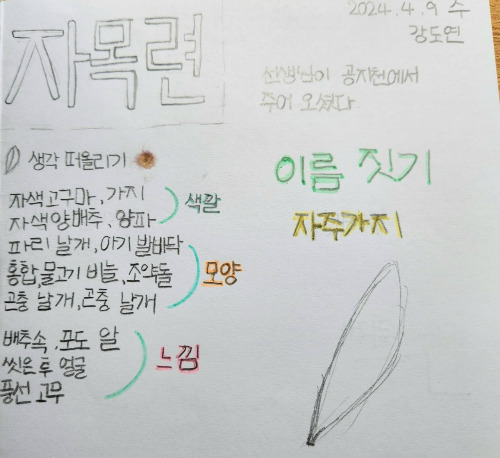 자목련
2024.4.9 수
강도연
선생님이 공지천에서
주어 오셨다
생각 떠올리기
자색고구마, 가지
자색양배추, 양파
색깔
파리 날개, 아기 발바닥
홍합, 물고기 비늘, 조약돌
곤충 날개, 곤충 날개
모양
배추속, 포도 알
씻은 후 얼굴
풍선 고무
느낌
이름 짓기
자주가지